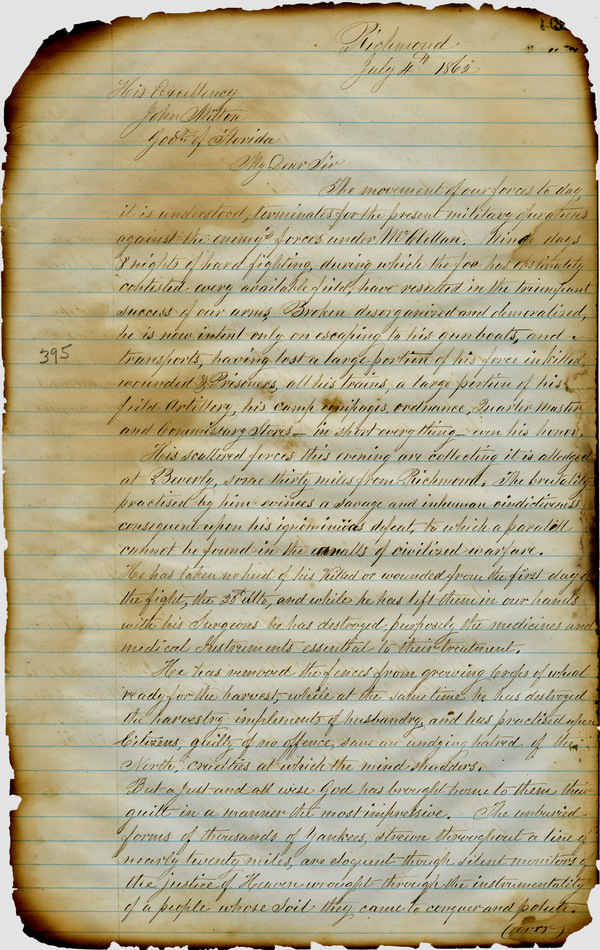 Richmond
July 4th 1862
His Excellency
John Milton
Govr. of Florida
My Dear Sir
The movement of our forces to day
it is understood, terminates for the present military operations
against the enemy's forces under McClellan. Nine days
& nights of hard fighting, during which the foe has obstinately
contested every available field, have resulted in the triumphant
success of our arms. Broken disorganized and demoralized,
he is now intent only on escaping to his gunboats, and
transports, having lost a large portion of his force in killed,
395
wounded & Prisoners, all his trains, a large portion of his
field Artillery, his camp equipages, ordnance, Quarter Master
and Commissary Stores — in short everything even his honor.
His scattered forces this evening are collecting it is alledged
at Beverly, some thirty miles from Richmond. The brutality
practised by him evinces a savage and inhuman vindictiveness
consequent upon his ignominious defeat, to which a paralell
cannot be found in the annalls of civilized warfare.
He has taken no heed of his killed or wounded from the first day of
the fight, the ulto, and while he has left them in our hands
with his Surgeons he has destroyed purposely the medicines and
medical Instruments essential to their treatment.
He has removed the fences from growing Crops of wheat
ready for the harvest, while at the same time he has destroyed
the harvesting implements of husbandry, and has practised upon
Citizens, guilty of no offence, save an undying hatred of the
North, cruelties at which the mind shudders.
But a just and all wise God has brought home to them their
guilt in a manner the most impressive. The unburied
forms of thousands of Yankees, strewn throughout a line of
nearly twenty miles, are eloquent though silent monitors of
the justice of Heaven wrought through the instrumentality
of a people whose Soil they came to conquer and polute.
(over)